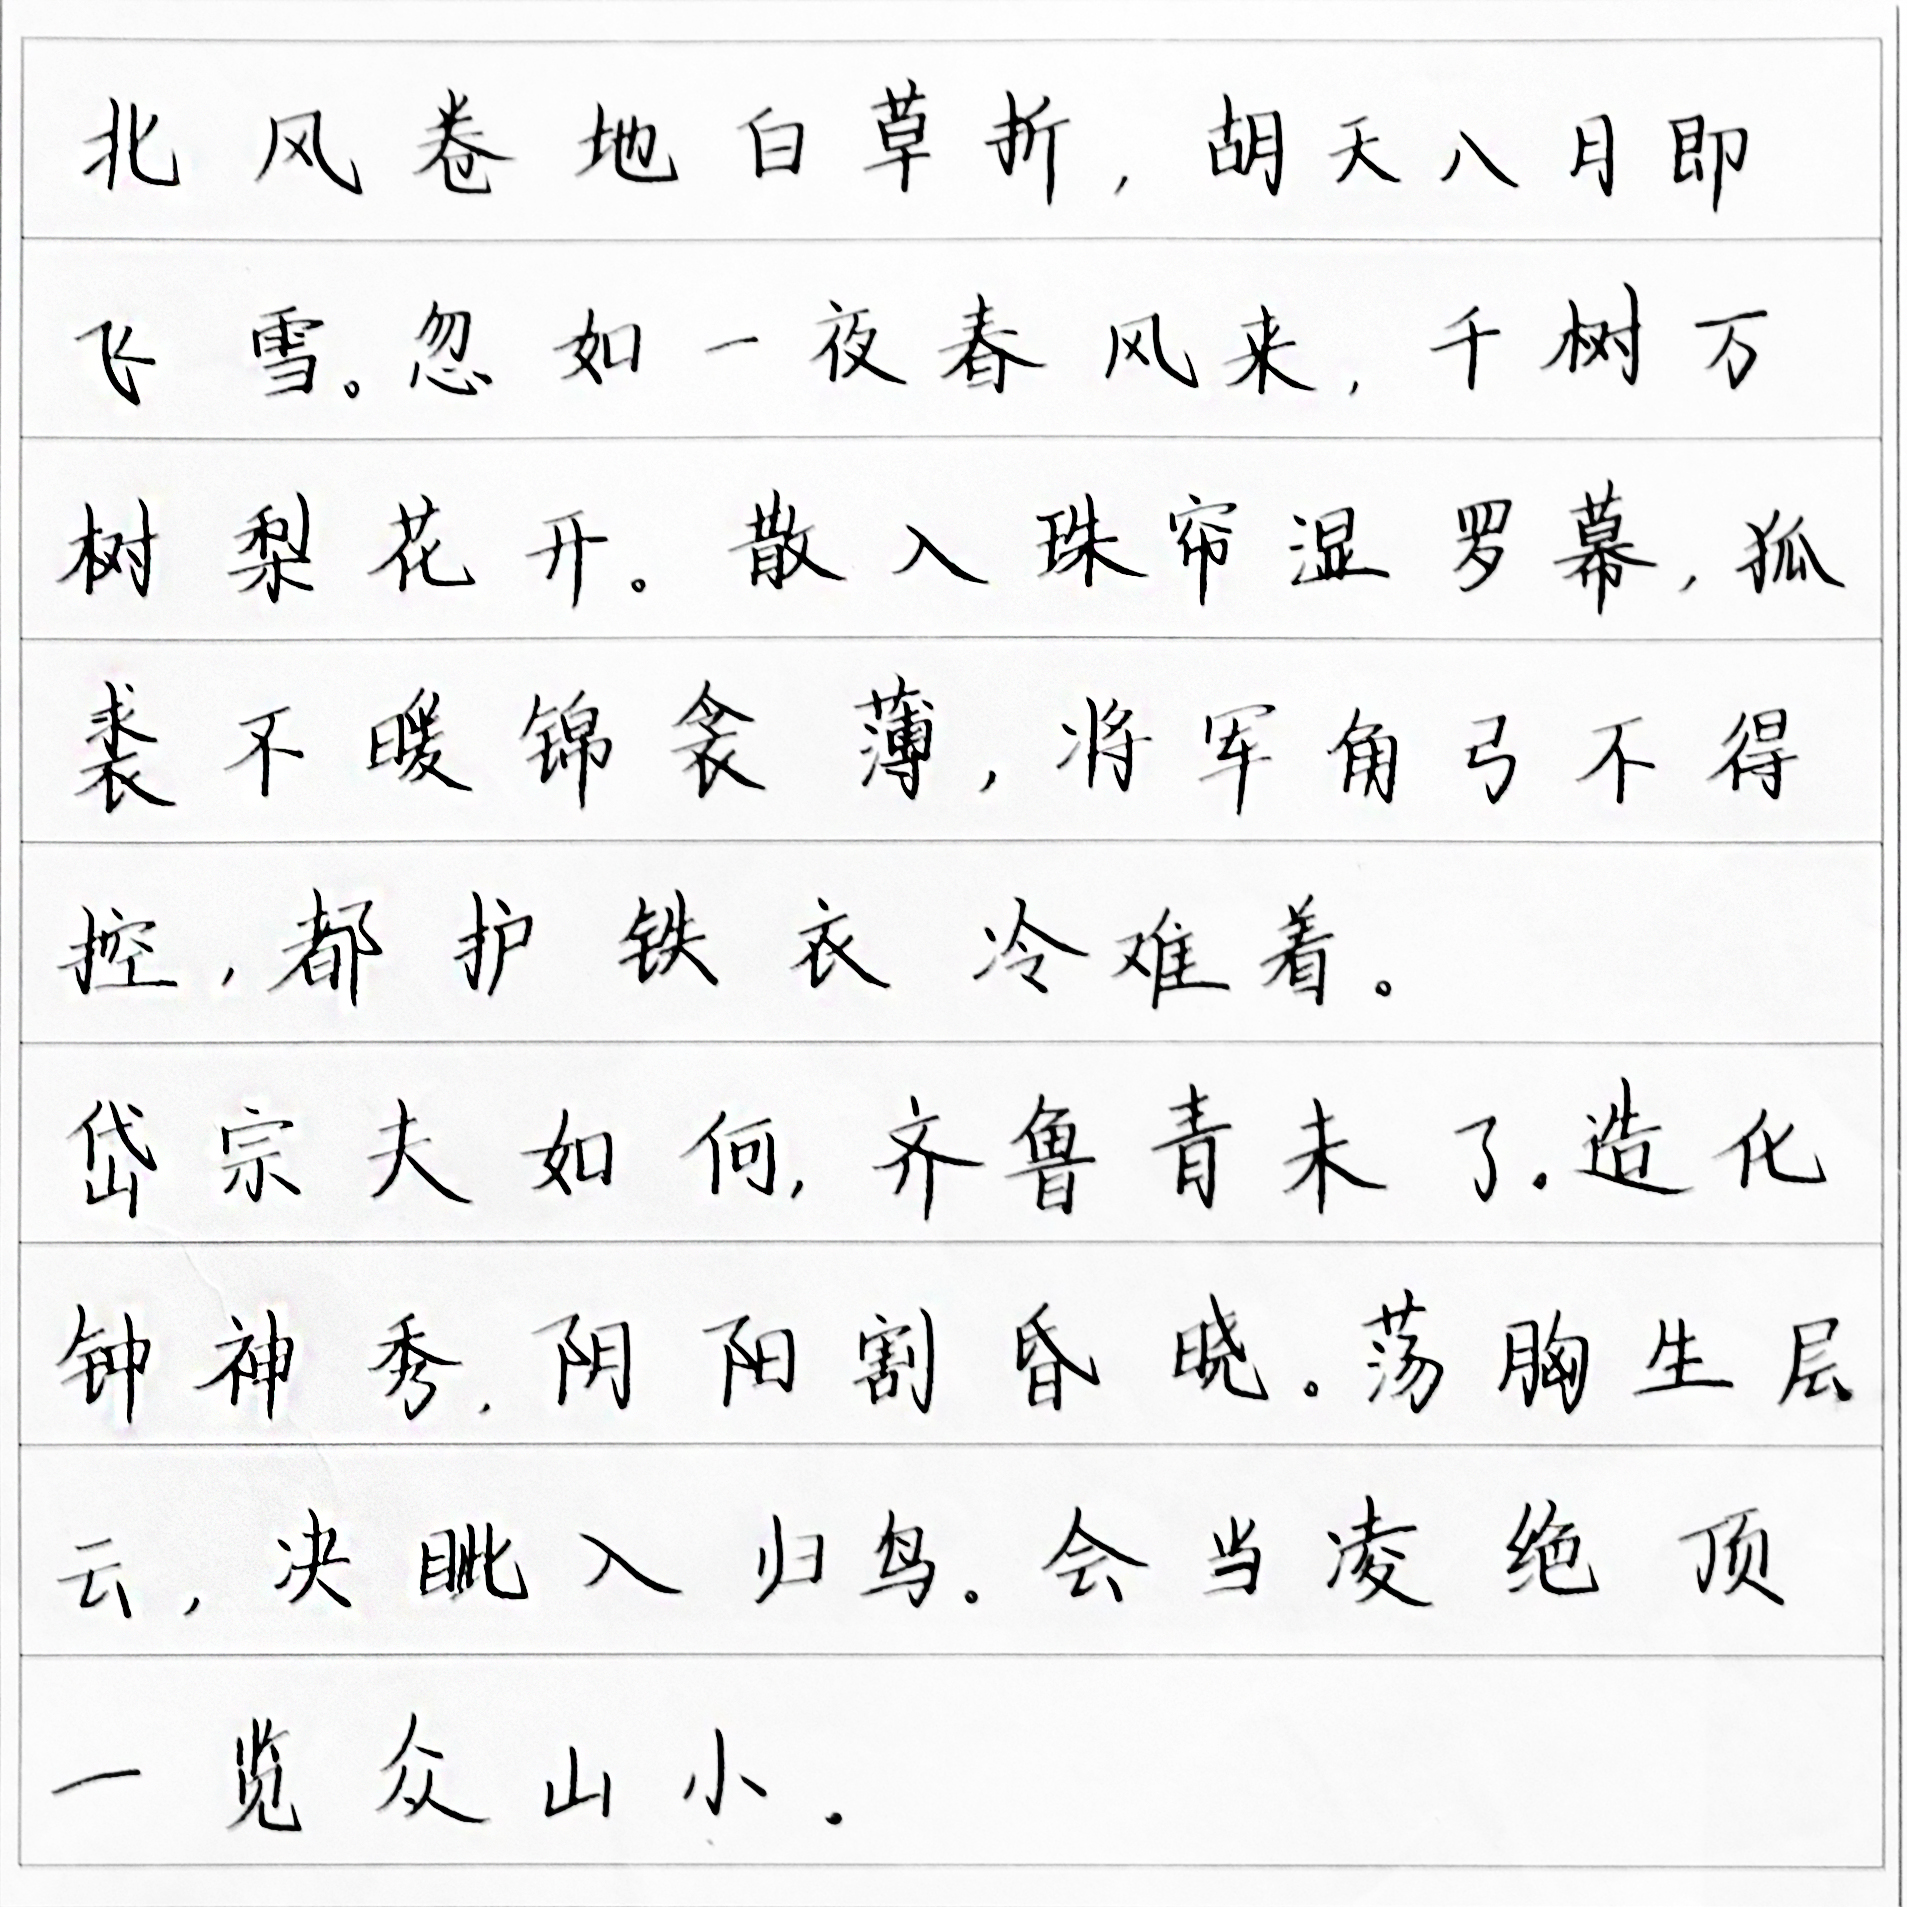 北风卷地白草折，胡天八月即
飞雪。忽如一夜春风来，千树万
树梨花开。散入珠帘湿罗幕，狐
裘不暖锦衾薄，将军角弓不得
控，都护铁衣冷难着。
岱宗夫如何，齐鲁青未了。造化
钟神秀，阴阳割昏晓。荡胸生层
云，决眦入归鸟。会当凌绝顶
一览众山小。